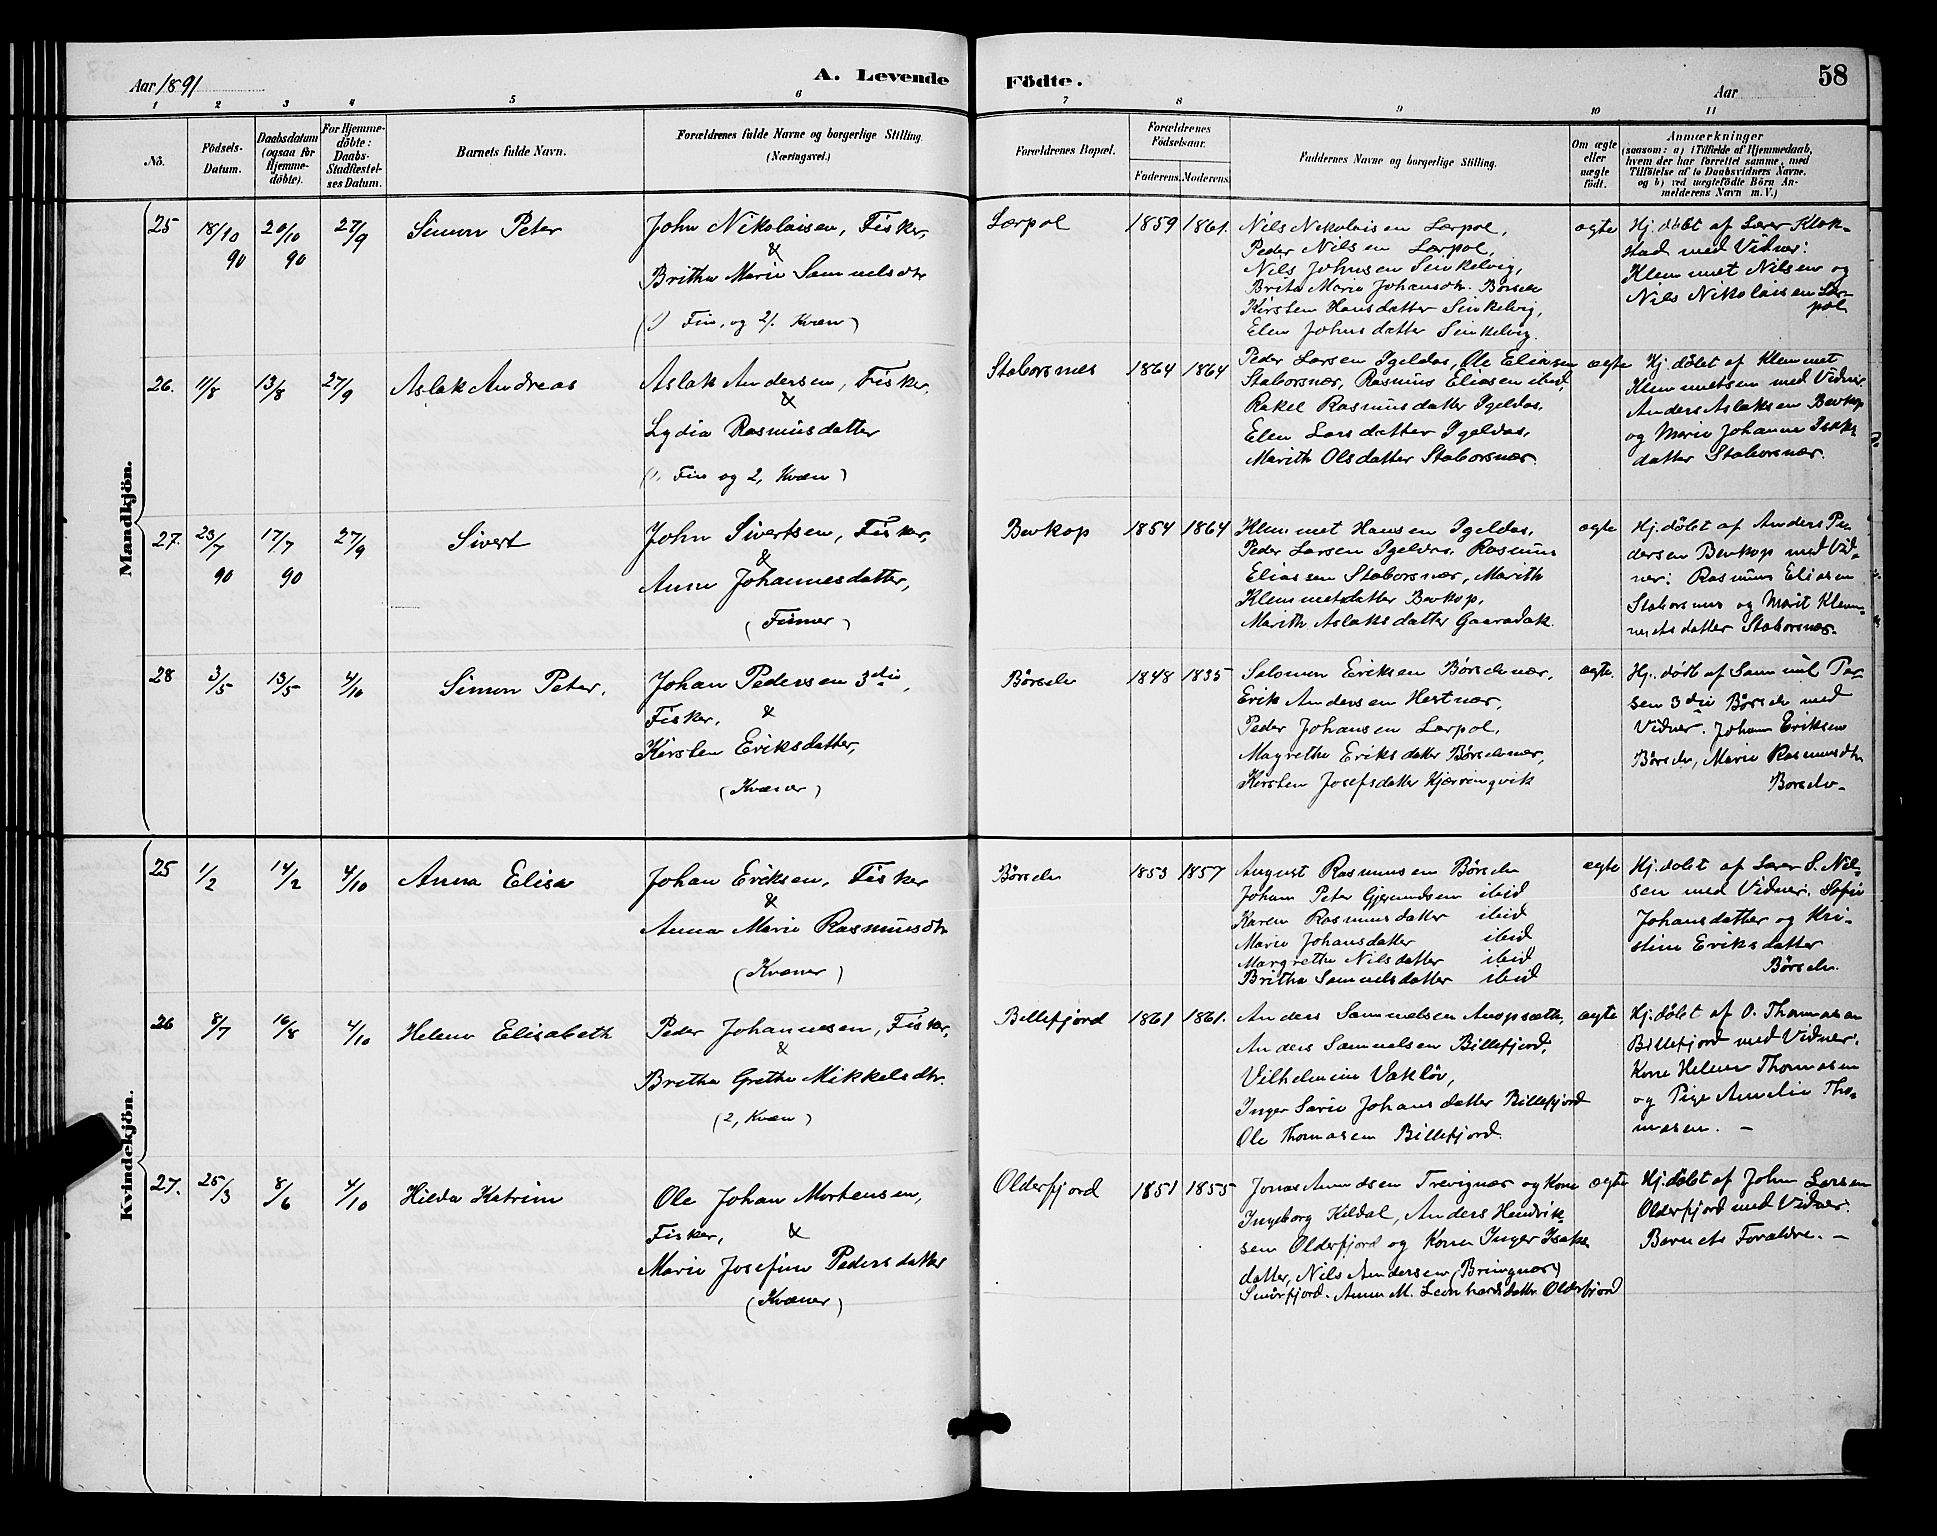 Aar 1891
A. Levende
Födte.
Aar
58
1 2 3 4 5 6 7 8 9 10 11
No.
Födsels-Datum.
Daabsdatum (ogsaa for Hjemme-döbte).
For Hjemme-döbte: Daabs-Stadfæstel-ses Datum.
Barnets fulde Navn.
Forældrenes fulde Navne og borgerlige Stilling
(Næringsvei.)
Forældrenes Bopæl.
Forældrenes Födselsaar.
Faderens. Moderens.
Faddernes Navne og borgerlige Stilling.
Om ægte eller uægte födt.
Anmærkninger
(saasom: a) i Tilfælde af Hjemmedaab,
hvem der har forrettet samme, med
Tilföielse af to Daabsvidners Navne,
og b) ved uægtefödte Börn An-
melderens Navn m. V.)
Mandkjön.
25 18/10 90 20/10 90 27/9
Simon Peter
John Nikolaisen, Fisker,
&
Britha Marie Samuelsdtr
(1) Fin, og 2/. Kvæn)
Lærpol
1859 1861.
Nils Nikolaisen Lærpol,
Peder Nilsen Lærpol,
Nils Johnsen Sinkelvig,
Brita Marie Johansdtr. Børselv
Kirsten Hansdatter Sinkelvig,
Elen Johnsdatter Sinkelvig.
ægte
Hj. døbt af Lærer Klok-
stad med Vidner:
Klemmet Nilsen og
Nils Nikolaisen Lær-
pol
26. 11/8 13/8 27/9
Aslak Andreas
Aslak Andersen, Fisker,
&
Lydia Rasmusdatter
(1, Fin og 2, Kvæn)
Staborsnes
1864 1864
Peder Larsen Igeldas, Ole Eliasen
Staborsnær, Rasmus Eliasen ibid,
Rakel Rasmusdatter Igeldas,
Elen Larsdatter Igeldas,
Marith Olsdatter Staborsnær.
ægte
Hj. døbt af Klemmet
Klemmetsen med Vidner
Anders Aslaksen Bevkop
og Marie Johanne Isaks
datter Staborsnær.
27. 23/7 90 17/7 90 27/9
Sivert
John Sivertsen, Fisker,
&
Anne Johannesdatter,
(Finner)
Bevkop
1854 1864
Klemmet Hansen Igeldas,
Peder Larsen Igeldas, Rasmus
Eliassen Staborsnær, Marith
Klemmetsdatter Bevkop,
Marith Aslaksdatter Gaaradak.
ægte
Hj. døbt af Anders Pe-
dersen Bevkop med Vid-
ner: Rasmus Eliasen
Staborsnes og Marit Klem-
metsdatter Staborsnær.
28 3/5 13/5 4/10
Simon Peter,
Johan Pedersen 3die,
Fisker, &
Kirsten Eriksdatter,
(Kvæner)
Börselv
1848 1835
Salomon Eriksen Börselvnær,
Erik Andersen Hestnær,
Peder Johansen Lærpol,
Magrethe Eriksdatter Børselvnær,
Kirsten Josefsdatter Kjæringvik
ægte.
Hj. døbt af Sammul
sen 3die Börselv med
Vidner: Johan Eriksen
Börselv, Marie Rasmusdtr
Börselv.
Kvindekjön.
25 1/2 14/2 4/10
Anna Elisa
Johan Eriksen, Fisker
&
Anna Marie Rasmusdtr
(Kvæner)
Börselv
1853 1857
August Rasmussen Börselv
Johan Peter Gjermundsen ibid
Karen Rasmusdatter ibid
Marie Johansdatter ibid
Margrethe Nilsdatter ibid
Britha Samuelsdatter ibid
ægte
Hj. døbt af Lærer S. Nil-
sen med Vidner: Sofie
Johansdatter og Kri-
stine Eriksdatter
Börselv.
26 8/7 16/8 4/10
Helene Elisabeth
Peder Johannesen, Fisker,
&
Britha Grethe Mikkelsdtr.
(2, Kvæn)
Billefjord
1861 1861.
Anders Samuelsen
Anders Samuelsen Billefjord,
Vilhelmine Vakløv,
Inger Sarie Johansdatter Billefjord
Ole Thomasen Billefjord.
ægte
Hj. døbt af O. Thomasen
Billefjord med Vidner:
Kone Helene Thomasen
og Pige Amelie Tho-
masen. —
27. 25/3 8/6 4/10
Hilda Katrine
Ole Johan Mortensen,
Fisker, &
Marie Josefine Pedersdatter
(Kvæner)
Olderfjord
1851 1855
Jonas Amundsen Trevignær og Kone
Ingeborg Kildal, Anders Hendrik-
sen Olderfjord og Kone Inger Isaks
datter, Nils Andersen (Bringnær)
Smörfjord. Anne M. Leonhardsdatter Olderfjord
ægte
Hj. døbt af John Larsen
Olderfjord med Vidner:
Barnets Forældre. —